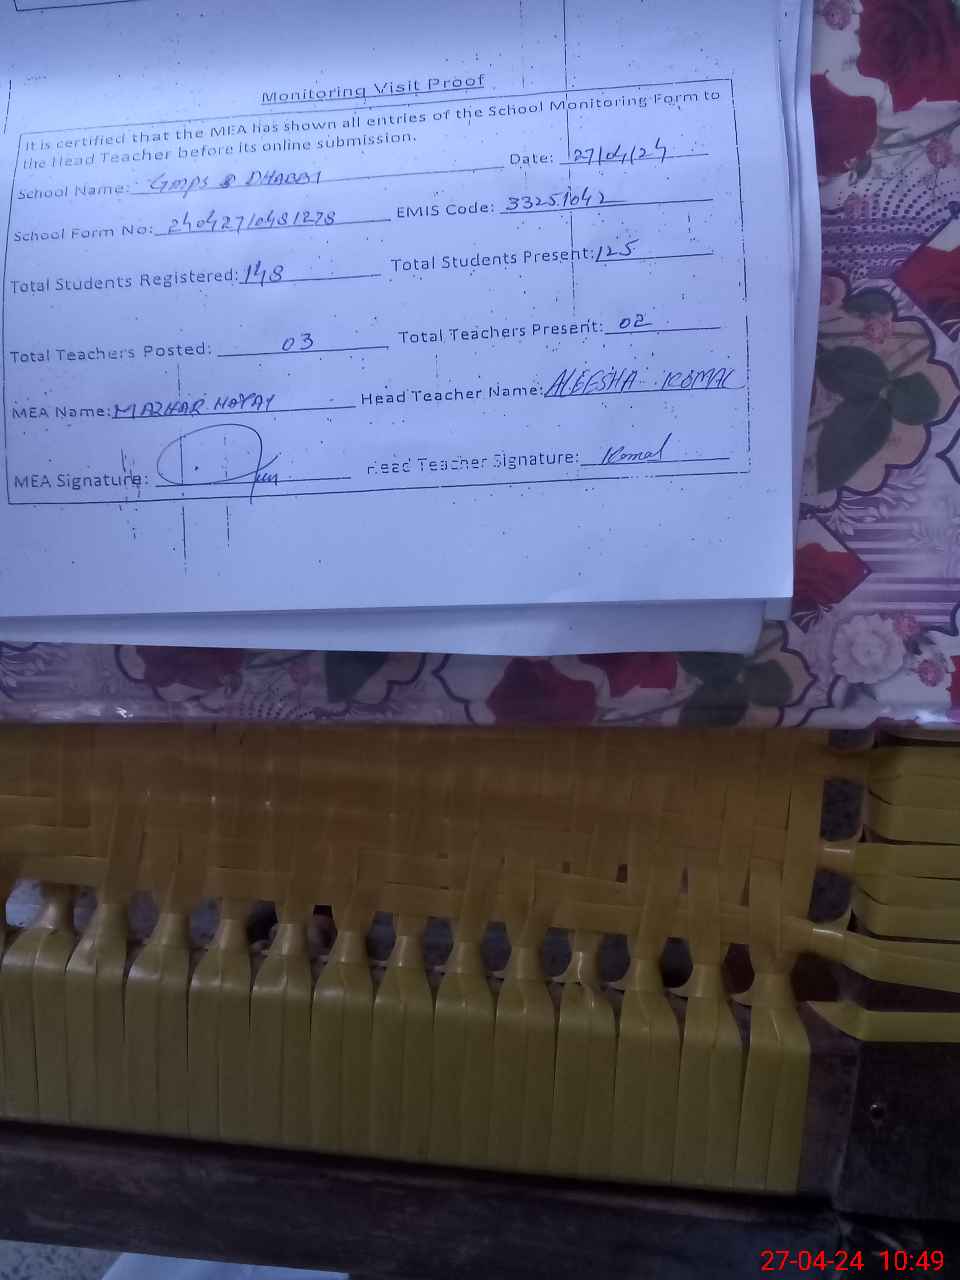 Monitoring Visit Proof
It is certified that the MEA has shown all entries of the School Monitoring Form to
the Head Teacher before its online submission.
School Name: GMPS DHABBI Date: 27/04/24
School Form No: 240427/0481278 EMIS Code: 33251042
Total Students Registered: 148 Total Students Present: 125
Total Teachers Posted: 03 Total Teachers Present: 02
MEA Name: MAZHAR HAYAT Head Teacher Name: ALEESHA KOMAL
MEA Signature: Head Teacher Signature: Komal
27-04-24 10:49